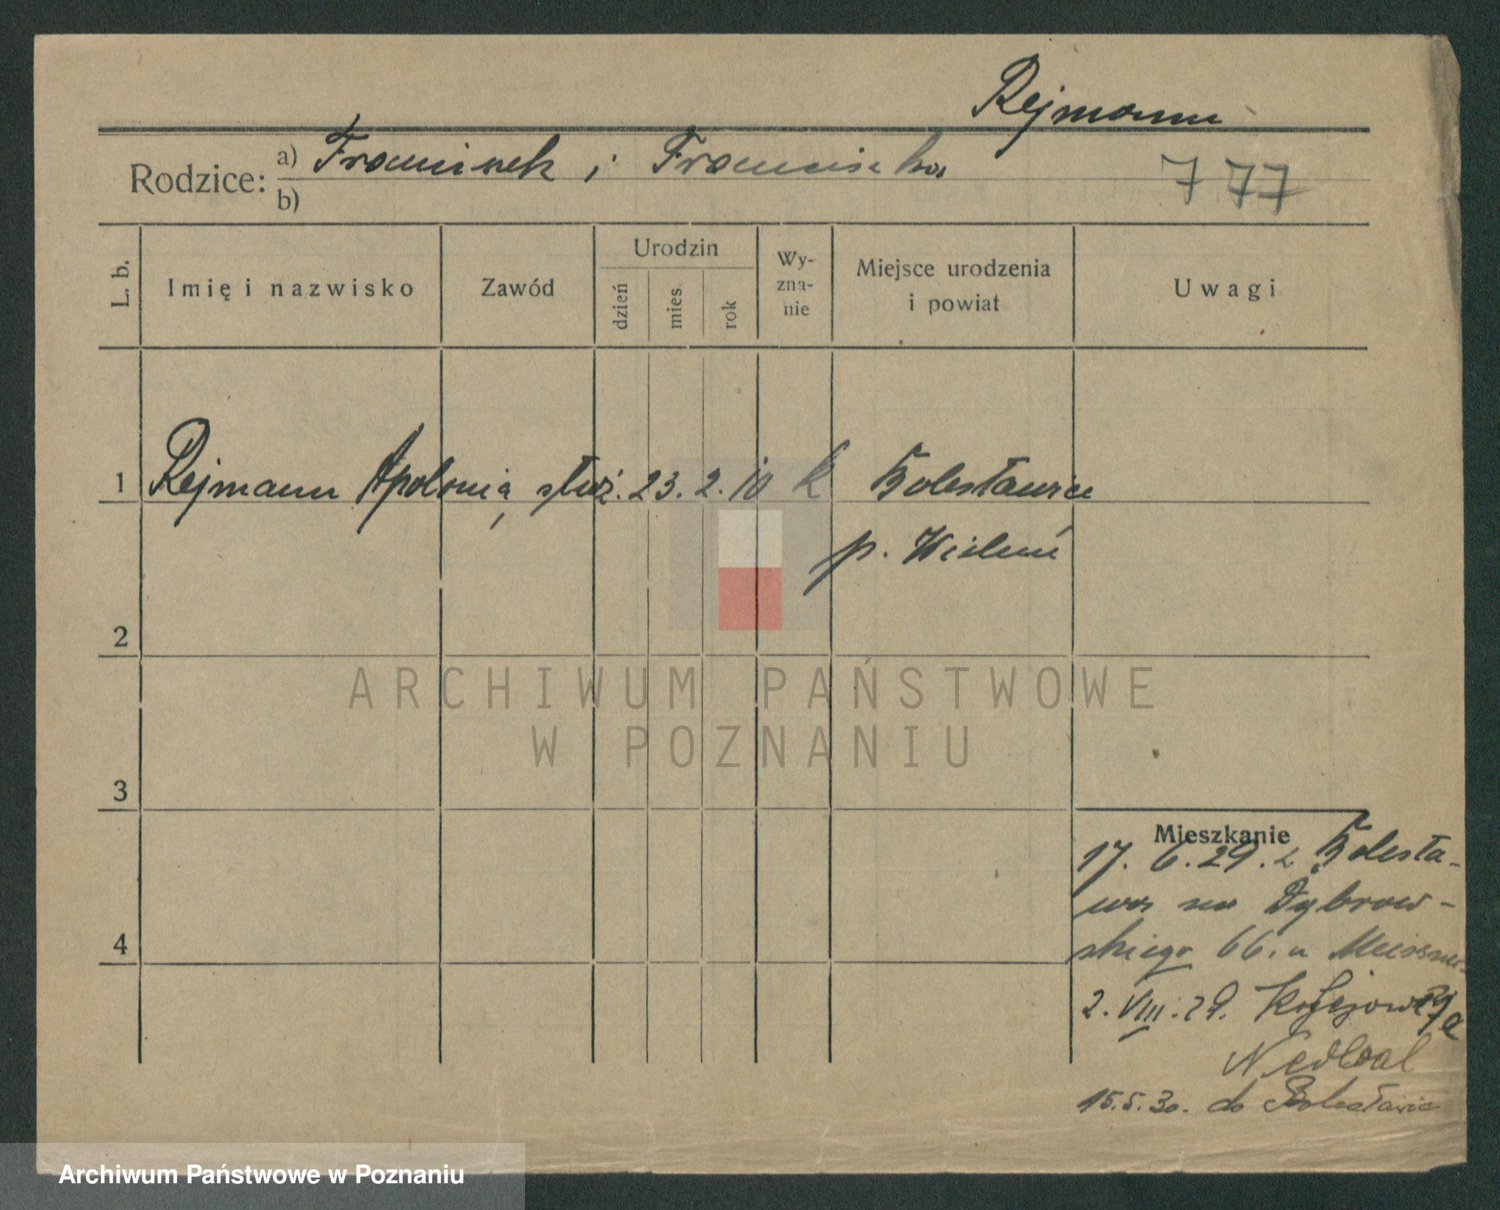 Rejmann
Rodzice: a) Franciszek i Franciszka
b)
777
L. b.
Imię i nazwisko
Zawód
Urodzin
dzień
mies
rok
Wy-
zna-
nie
Miejsce urodzenia
i powiat
Uwagi
1 Rejmann Apolonia, służ. 23. 2. 10 k Bolesławice
p. Wieluń
2
3
4
ARCHIWUM PAŃSTWOWE
W POZNANIU
Mieszkanie
17. 6. 29. z Bolesła-
wca na Dąbrow-
skiego 66. u
2. VIII. 29. Kolejowa
15.5.30. do Bolesławic
Archiwum Państwowe w Poznaniu